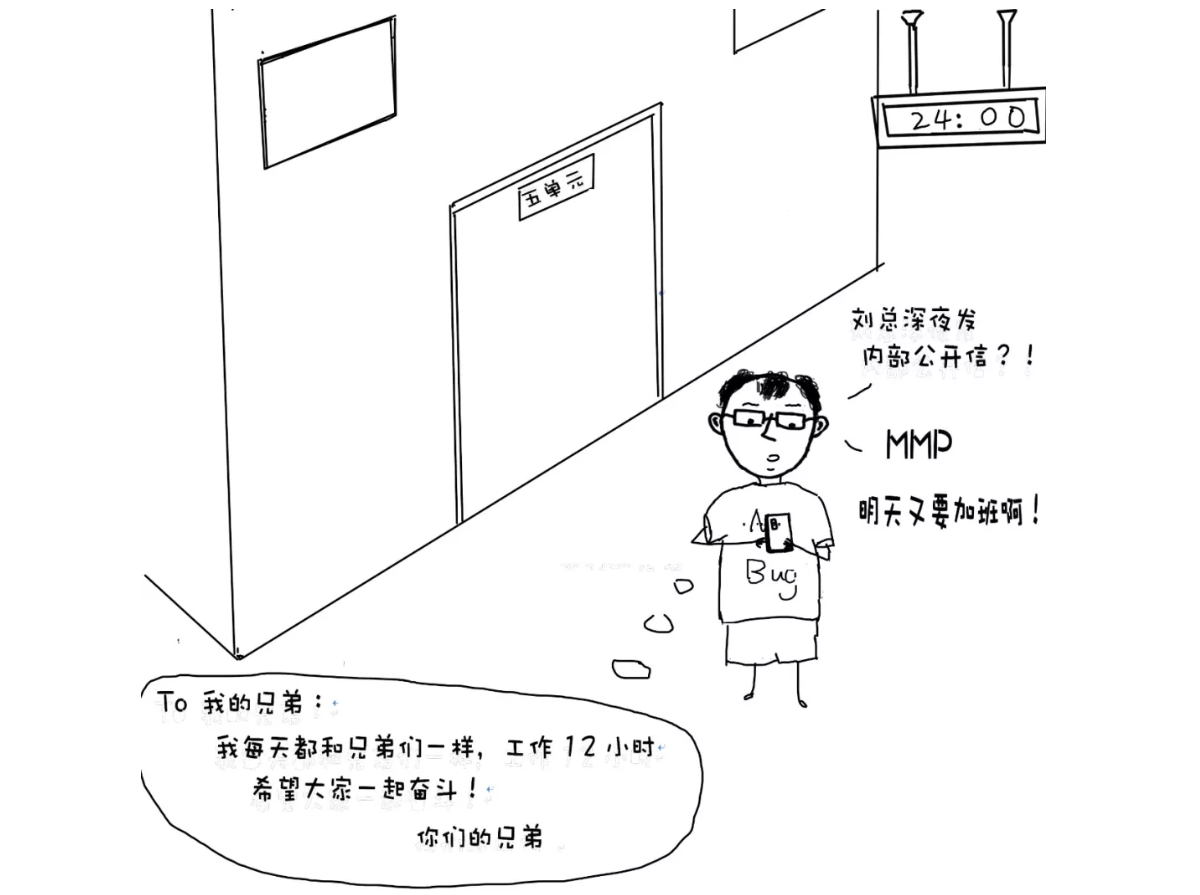 24:00
五单元
刘总深夜发
内部公开信？！
MMP
明天又要加班啊！
A
B
Bug
To 我的兄弟：
我每天都和兄弟们一样，工作12小时
希望大家一起奋斗！
你们的兄弟